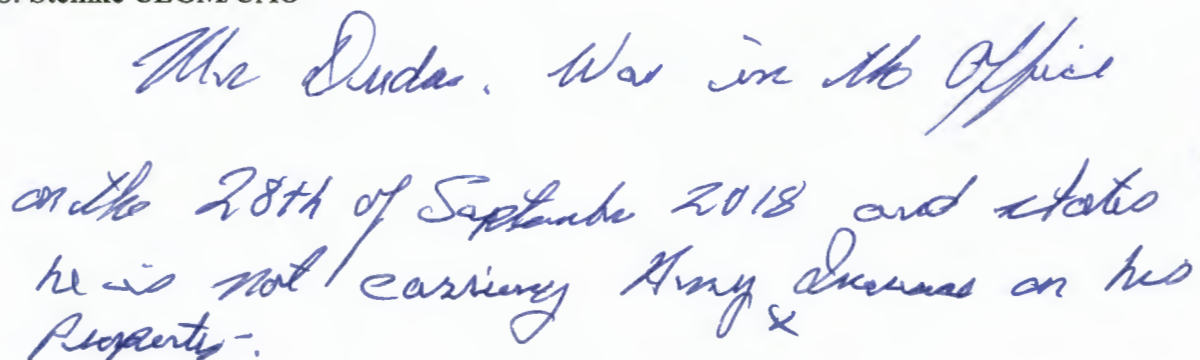 Mr Dudas. Was in the Office
on the 28th of September 2018 and states
he is not carrying Any Insurance on his
Property.